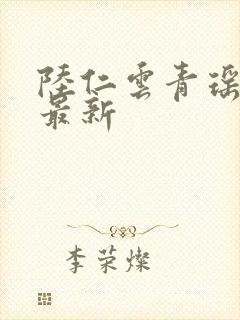 陸仁雲青瑶
最新
李荣燦